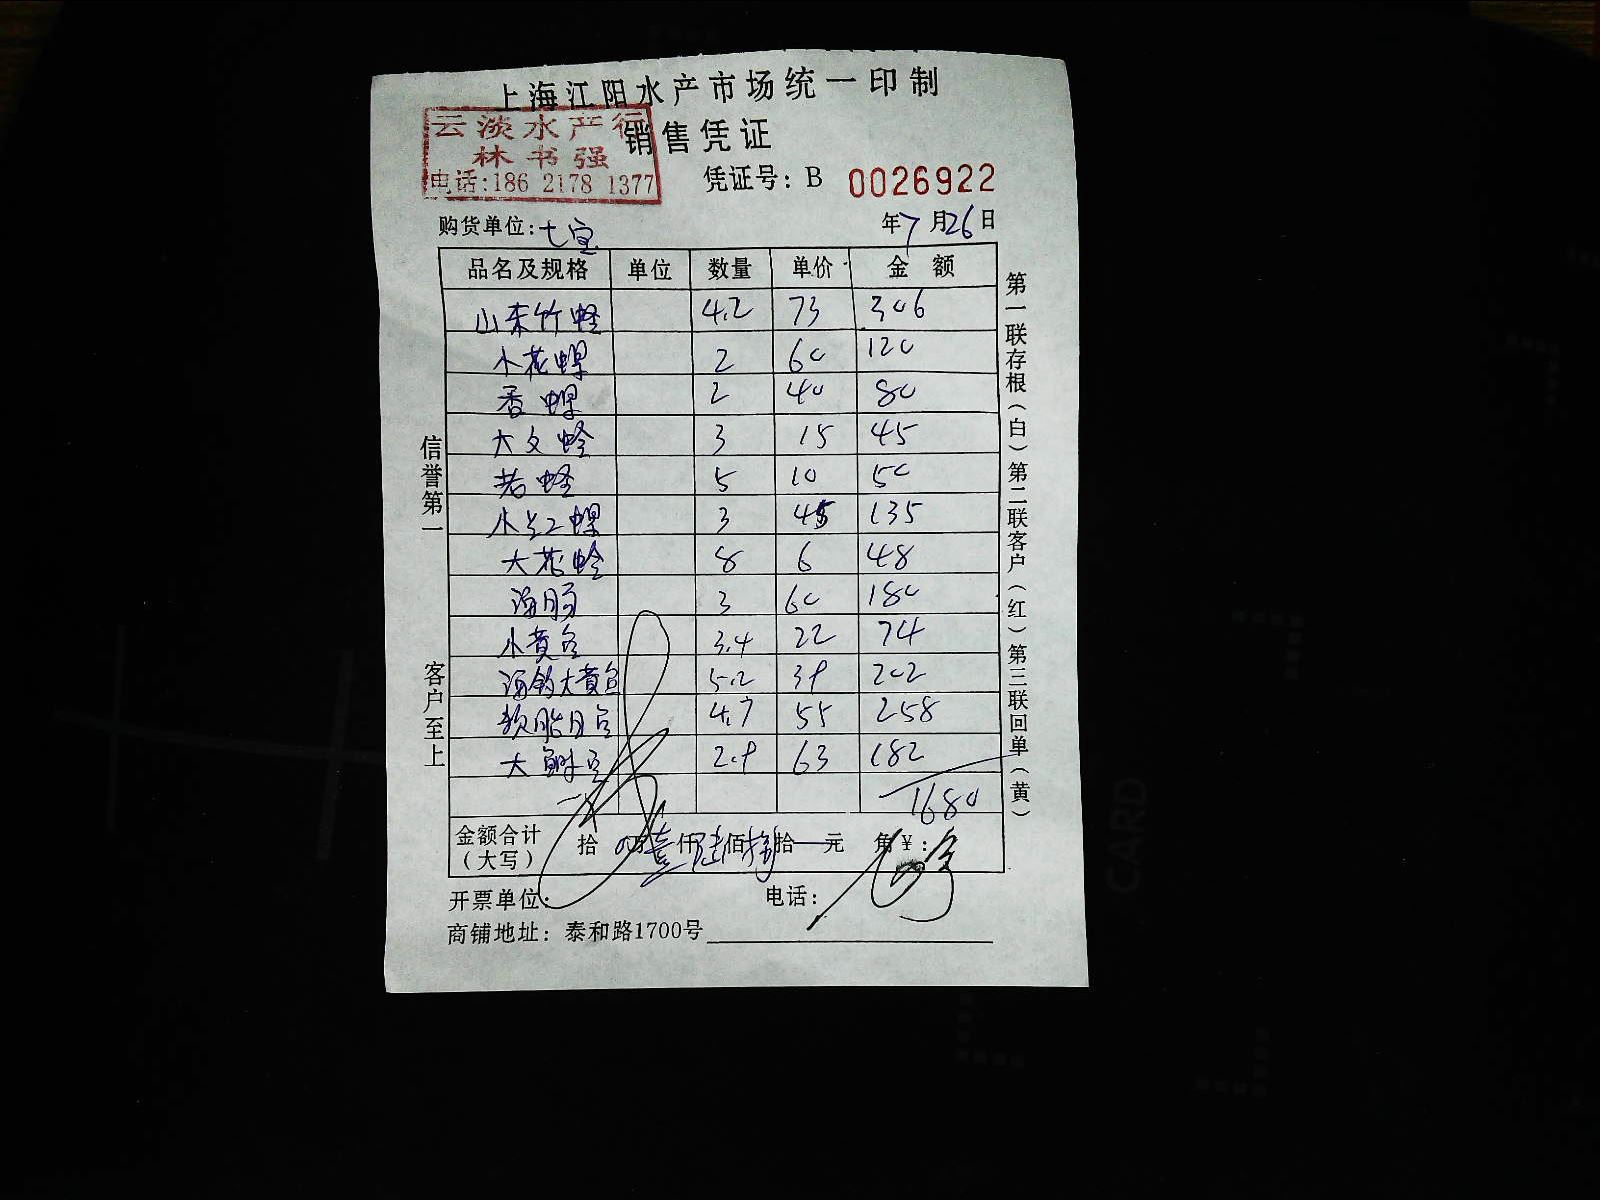 上海江阳水产市场统一印制
云淡水产行
林书强
电话:186 2178 1377
销售凭证
凭证号: B 0026922
购货单位: 七宝
年 7 月 26 日
品名及规格 单位 数量 单价 金 额
山东竹蛏 4.2 73 306
小花螺 2 60 120
香螺 2 40 80
大文蛤 3 15 45
老蛏 5 10 50
小红螺 3 45 135
大花蛤 8 6 48
海肠 3 60 180
小黄鱼 3.4 22 74
海钓大黄鱼 5.2 39 202
4.7 55 258
大 2.9 63 182
1680
金额合计（大写） 拾 万 壹 仟 陆 佰 捌 拾 元 角 ￥:
开票单位:
电话:
商铺地址: 泰和路1700号
信誉第一
客户至上
第一联存根(白)第二联客户(红)第三联回单(黄)
CARD